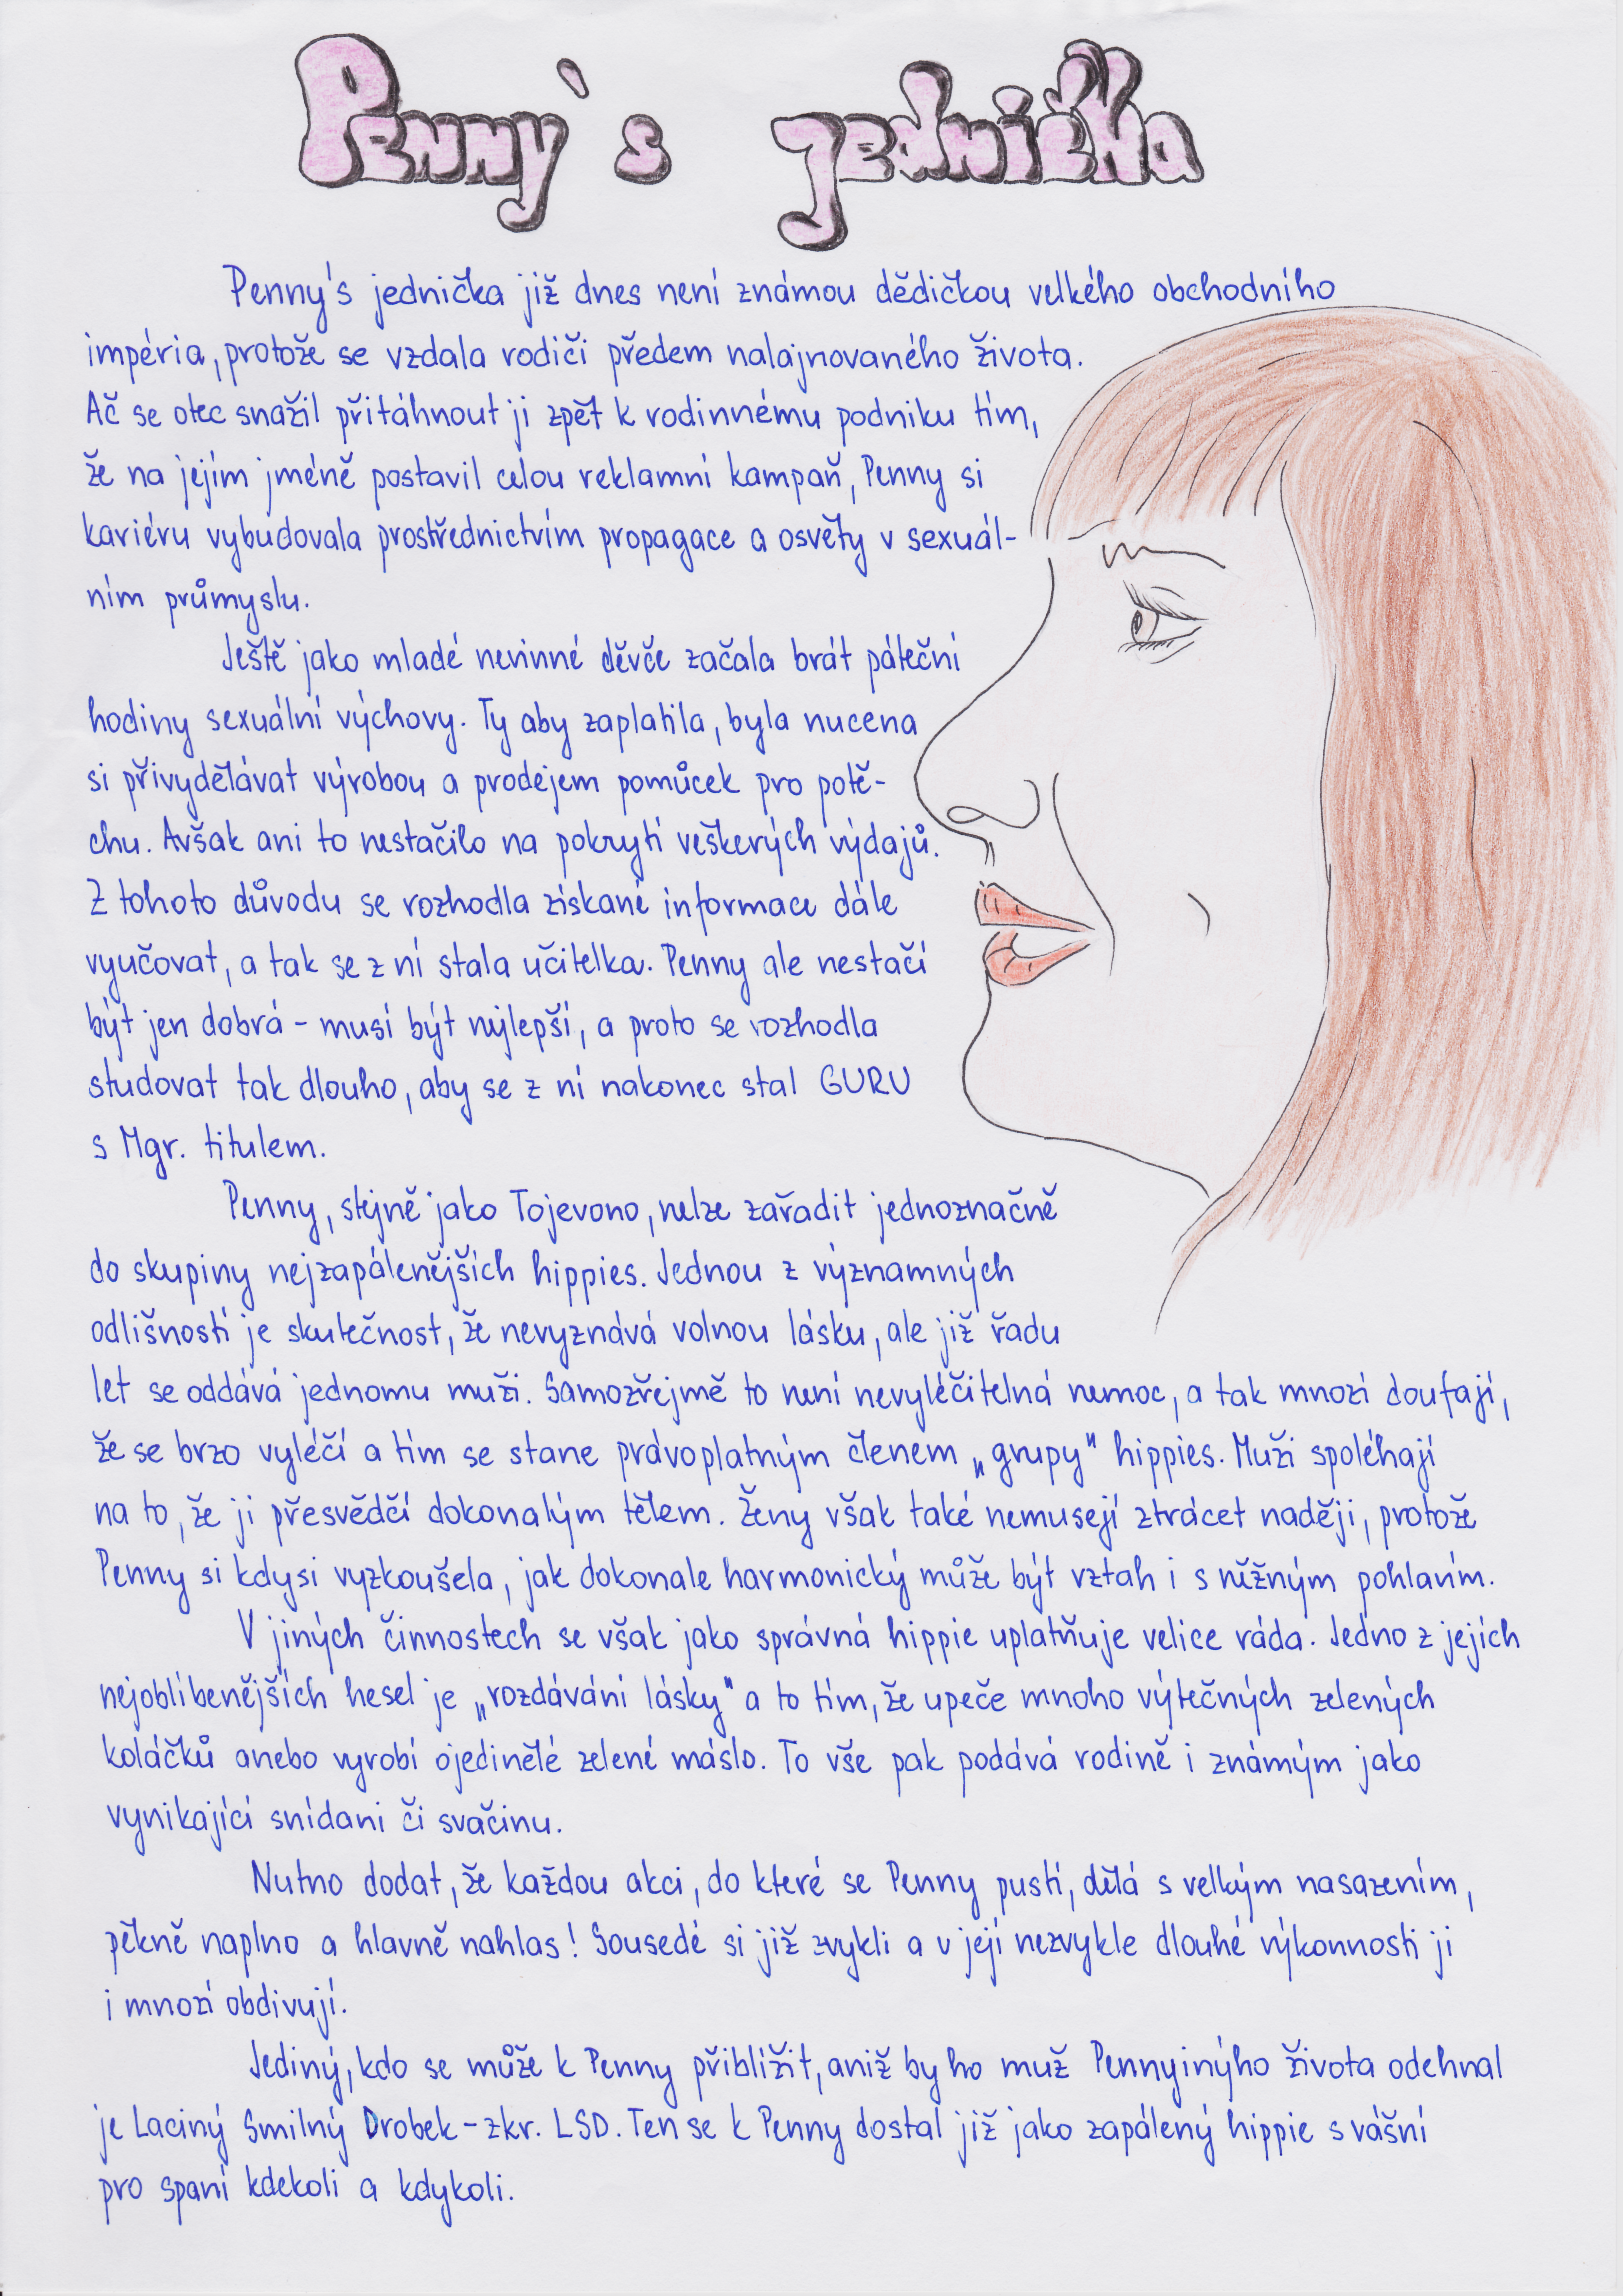 Penny's jednička
Penny's jednička již dnes není známou dědičkou velkého obchodního
impéria, protože se vzdala rodiči předem nalajnovaného života.
Ač se otec snažil přitáhnout ji zpět k rodinnému podniku tím,
že na jejím jméně postavil celou reklamní kampaň, Penny si
kariéru vybudovala prostřednictvím propagace a osvěty v sexuál-
ním průmyslu.
Ještě jako mladé nevinné děvče začala brát páteční
hodiny sexuální výchovy. Ty aby zaplatila, byla nucena
si přivydělávat výrobou a prodejem pomůcek pro potě-
chu. Avšak ani to nestačilo na pokrytí veškerých výdajů.
Z tohoto důvodu se rozhodla získané informace dále
vyučovat, a tak se z ní stala učitelka. Penny ale nestačí
být jen dobrá - musí být nejlepší, a proto se rozhodla
studovat tak dlouho, aby se z ní nakonec stal GURU
s Mgr. titulem.
Penny, stejně jako Tojevono, nelze zařadit jednoznačně
do skupiny nejzapálenějších hippies. Jednou z významných
odlišností je skutečnost, že nevyznává volnou lásku, ale již řadu
let se oddává jednomu muži. Samozřejmě to není nevyléčitelná nemoc, a tak mnozí doufají,
že se brzo vyléčí a tím se stane právoplatným členem „grupy" hippies. Muži spoléhají
na to, že ji přesvědčí dokonalým tělem. Ženy však také nemusejí ztrácet naději, protože
Penny si kdysi vyzkoušela, jak dokonale harmonický může být vztah i s něžným pohlavím.
V jiných činnostech se však jako správná hippie uplatňuje velice ráda. Jedno z jejích
nejoblíbenějších hesel je „rozdávání lásky" a to tím, že upeče mnoho výtečných zelených
koláčků anebo vyrobí ojedinělé zelené máslo. To vše pak podává rodině i známým jako
vynikající snídani či svačinu.
Nutno dodat, že každou akci, do které se Penny pustí, dělá s velkým nasazením,
pěkně naplno a hlavně nahlas! Sousedé si již zvykli a v její nezvykle dlouhé výkonnosti ji
i mnozí obdivují.
Jediný, kdo se může k Penny přiblížit, aniž by ho muž Pennyinýho života odehnal
je Laciný Smilný Drobek - zkr. LSD. Ten se k Penny dostal již jako zapálený hippie s vášní
pro spaní kdekoli a kdykoli.